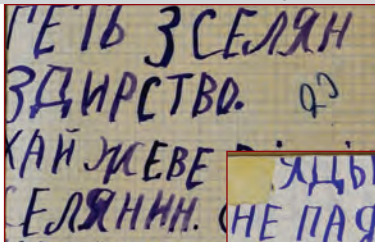 ГЕТЬ З СЕЛЯН
ЗДИРСТВО.
ХАЙ ЖЕВЕ
СЕЛЯНИН.
НЕ ПАЯ